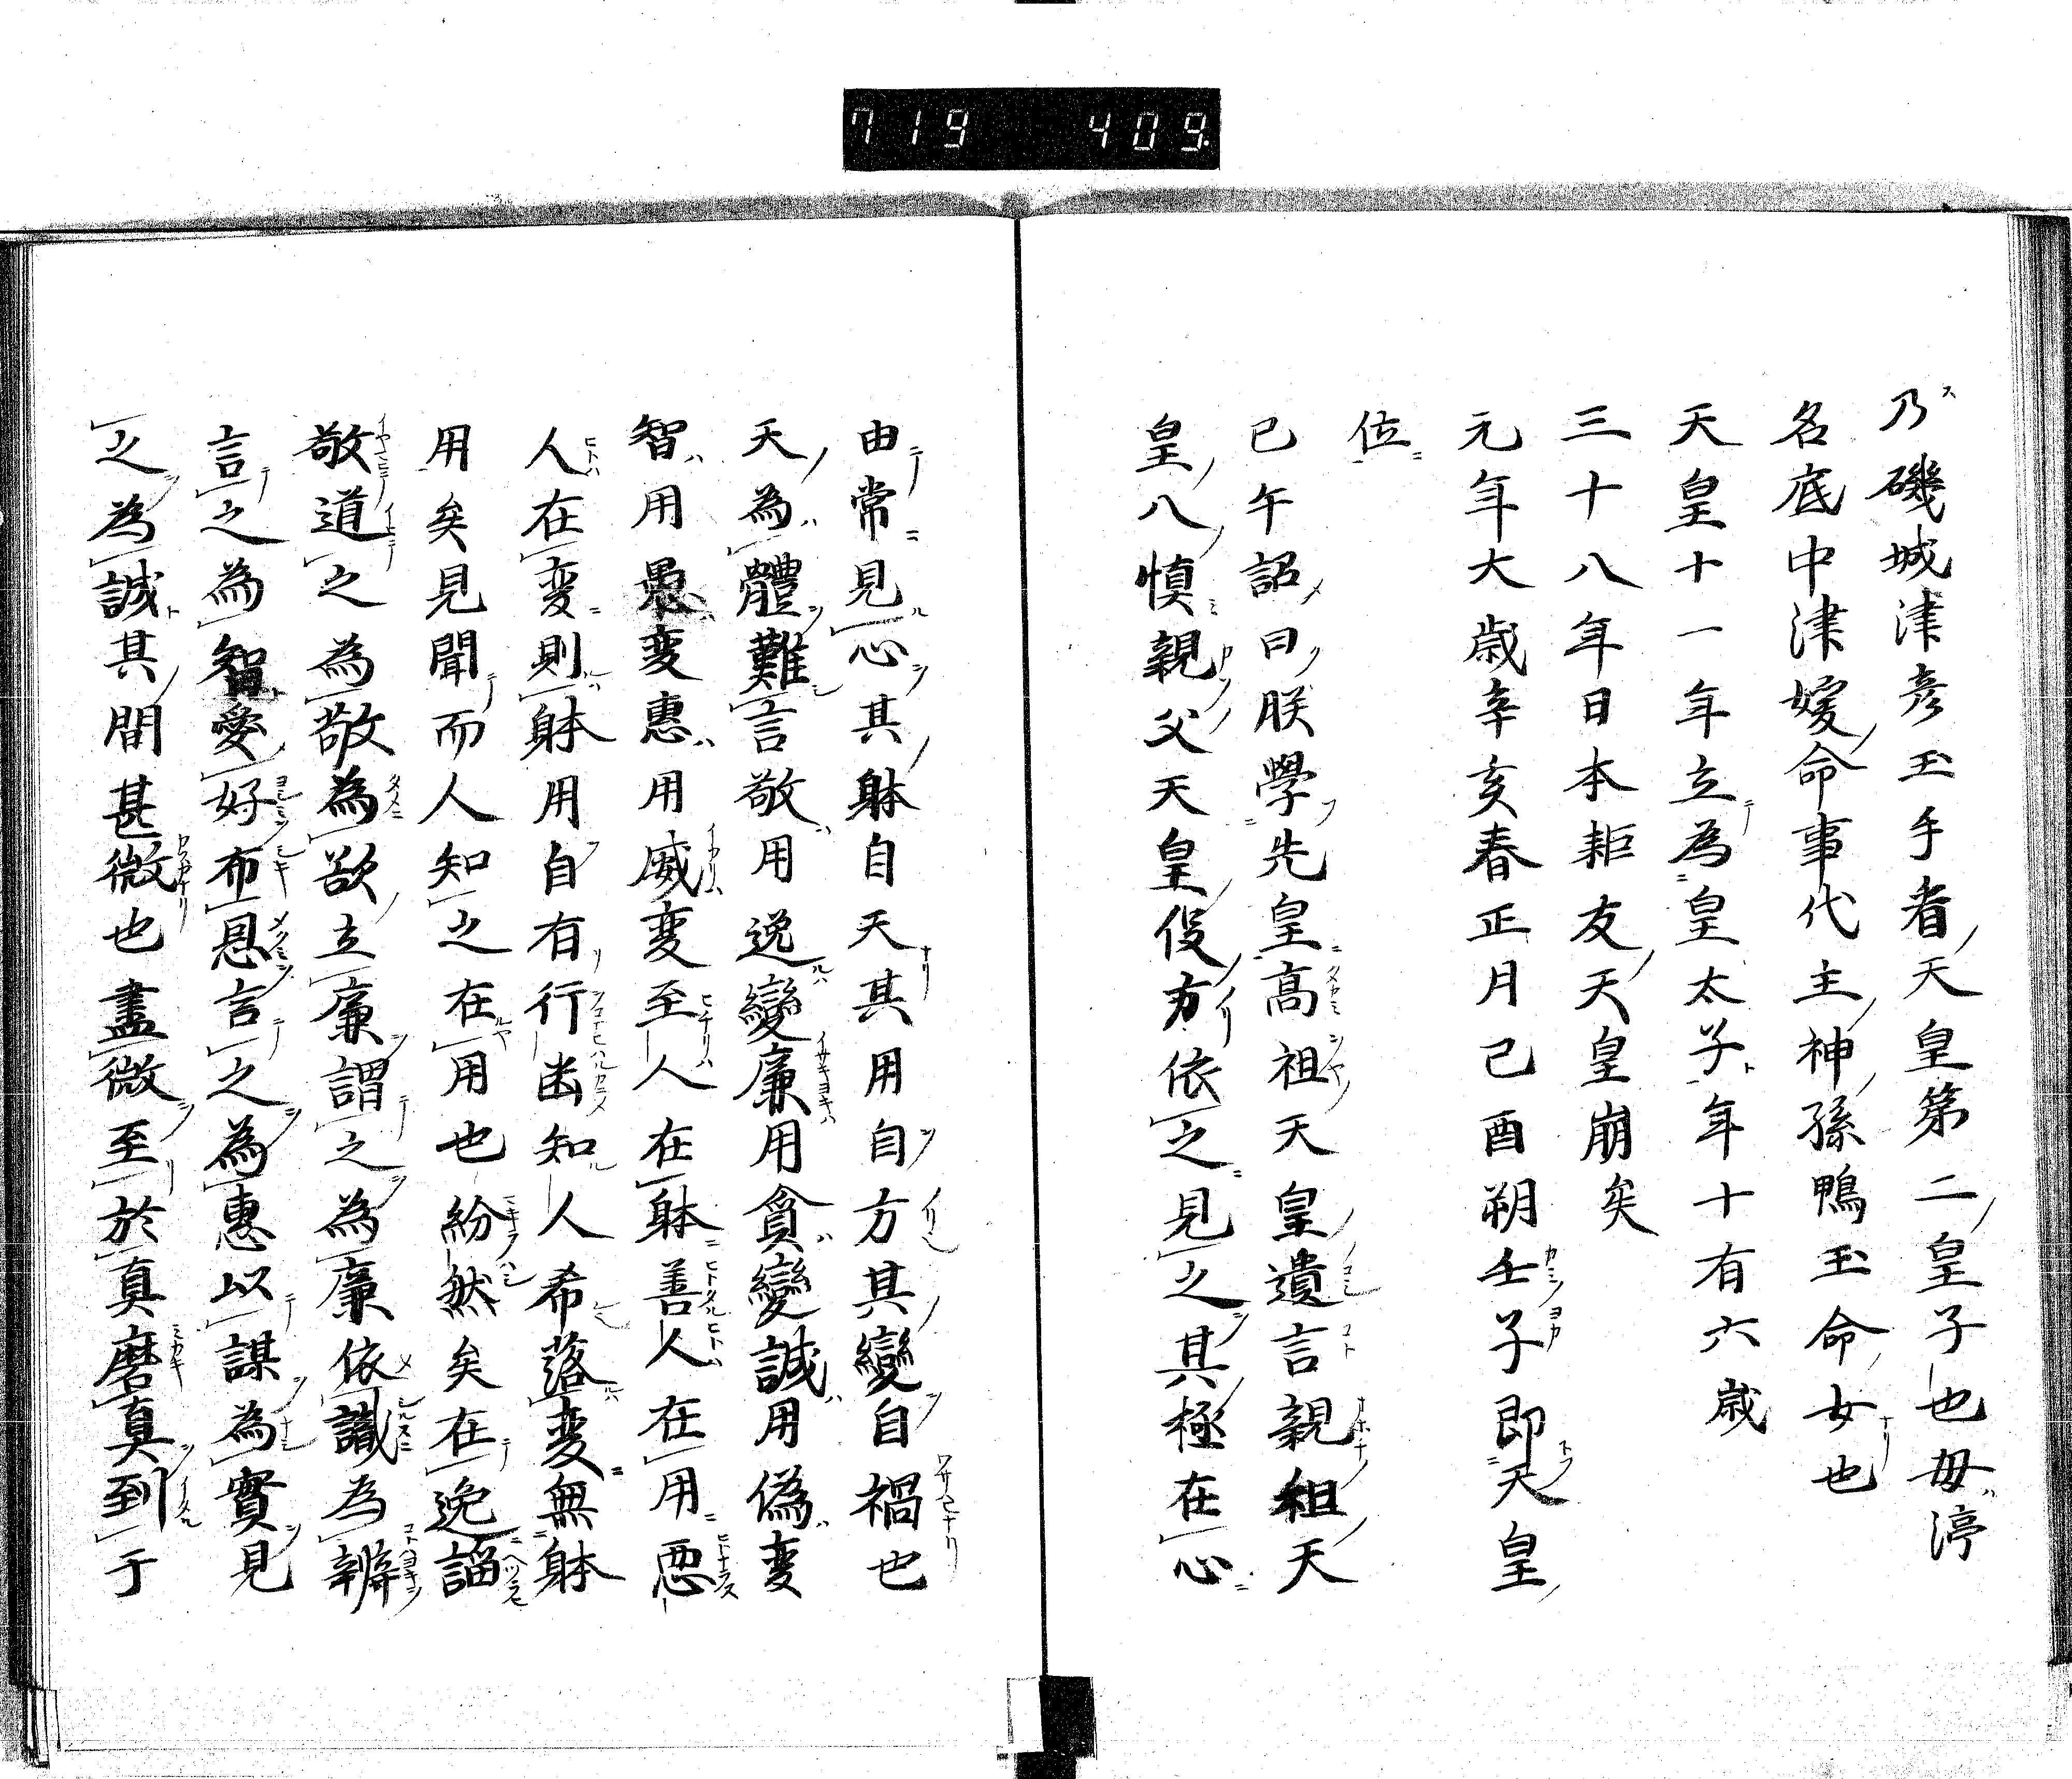 719 409.
乃磯城津彦玉手者天皇第二皇子也母渟
名底中津媛命事代主神孫鴨玉命女也
天皇十一年立為皇太子年十有六歳
三十八年日本耟友天皇崩矣
元年大歳辛亥春正月己酉朔壬子即天皇
位
已午詔曰朕學先皇高祖天皇遺言親祖天
皇八慎親父天皇伇方依之見之其極在心
由常見心其躰自天其用自方其變自禍也
天為體難言敬用逸變廉用貪變誠用偽変
智用愚変惠用威変至人在躰善人在用惡
人在変則躰用自有行幽知人希落変無躰
用矣見聞而人知之在用也紛然矣在逸謟
敬道之為敬為欲立廉謂之為廉依識為辨
言之為智愛好布恩言之為惠以謀為實見
之為誠其間甚微也盡微至於真磨真到于